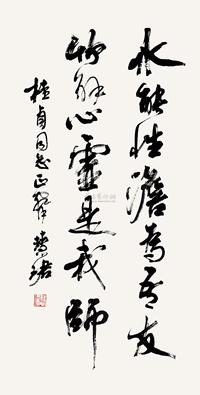 水能性澹為吾友
竹解心靈是我師
桂貞同志正